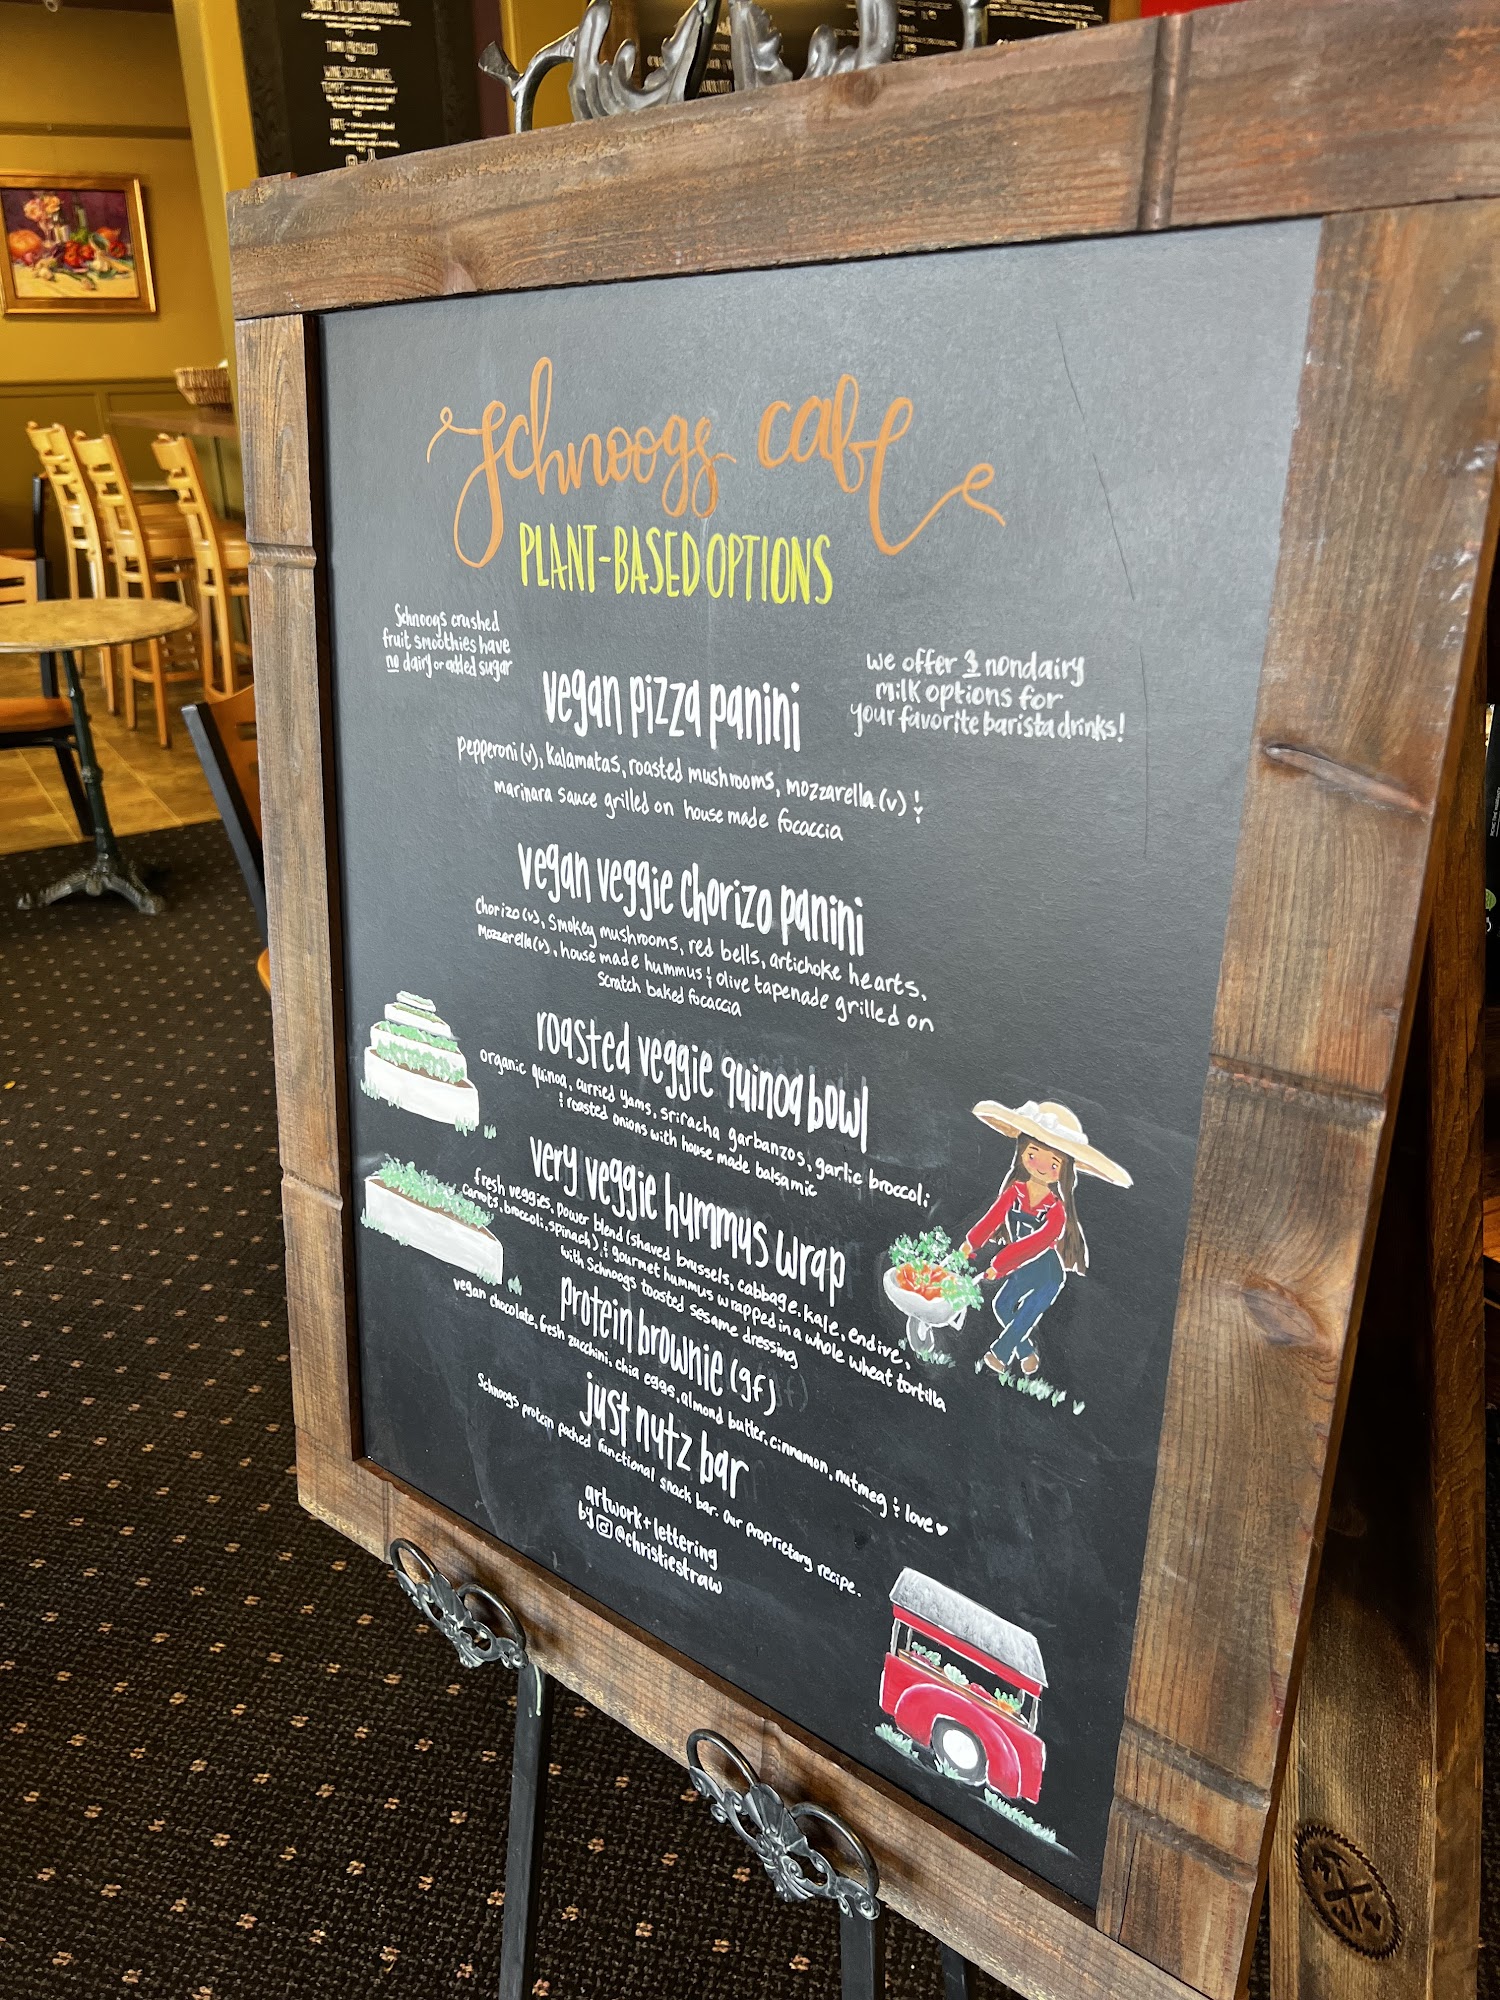 SANTA JULIA CHARDONNAY
TIAMO PROSECCO
WINE SOCIETY WINES
TEMPT
FATE
schnoogs cafe
PLANT-BASED OPTIONS
Schnoogs crushed
fruit smoothies have
no dairy or added sugar
we offer 3 nondairy
milk options for
your favorite barista drinks!
vegan pizza panini
pepperoni (v), Kalamatas, roasted mushrooms, mozzarella (v) &
marinara sauce grilled on house made focaccia
vegan veggie chorizo panini
Chorizo (v), Smokey mushrooms, red bells, artichoke hearts,
Mozzerella (v), house made hummus & olive tapenade grilled on
Scratch baked focaccia
roasted veggie quinoa bowl
organic quinoa, curried yams, sriracha garbanzos, garlic broccoli
& roasted onions with house made balsamic
very veggie hummus wrap
fresh veggies, power blend (shaved brussels, cabbage, kale, endive,
carrots, broccoli, spinach) & gourmet hummus wrapped in a whole wheat tortilla
with Schnoogs toasted sesame dressing
protein brownie (gf)
vegan chocolate, fresh zucchini, chia eggs, almond butter, cinnamon, nutmeg & love ♥
just nutz bar
Schnoogs protein packed functional snack bar. our proprietary recipe.
artwork + lettering
by @christiestraw